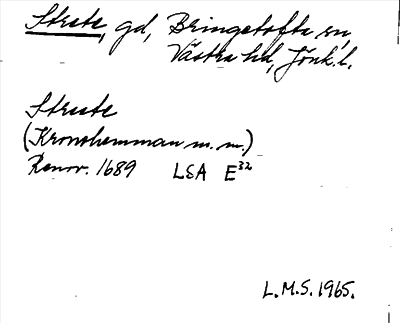 Strete, gd, Bringetofta sn,
Västra hd, Jönk. l.
Streete
(Kronohemman m. m.)
Renov. 1689 LSA E32
L.M.S. 1965.